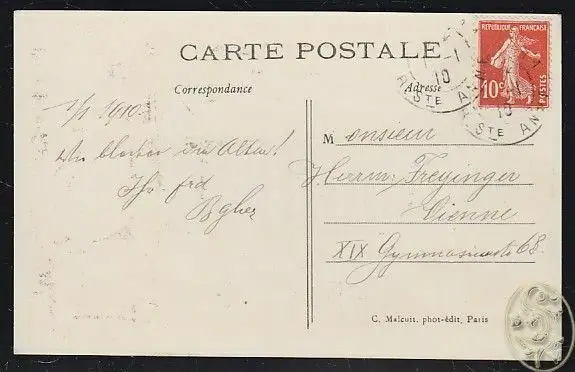 CARTE POSTALE
Correspondance
Adresse
REPUBLIQUE FRANÇAISE
10c
POSTES
10
STE ANNE
10
STE ANNE
1/1 1910
Wir bleiben die Alten!
Ihr frd
M onsieur
Herrn Freyinger
Vienne
XIX Gymnasiumstr 68.
C. Malcuit, phot-édit, Paris